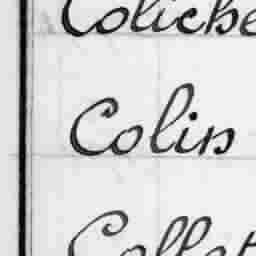 Coliche
Colin
Collet